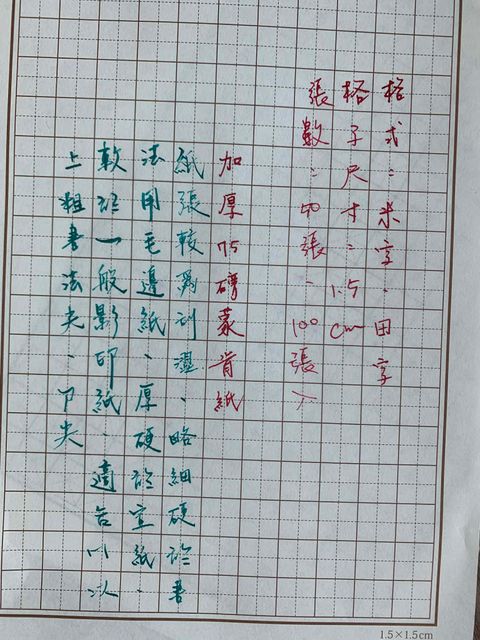 格式：米字、田字
格子尺寸：1.5cm
張數：50張、100張入
加厚75磅蒙肯紙
紙張較為刮澀、略細硬於書
法用毛邊紙、厚硬於宣紙、
軟於一般影印紙、適合M以
上粗書法尖、F尖
1.5×1.5cm